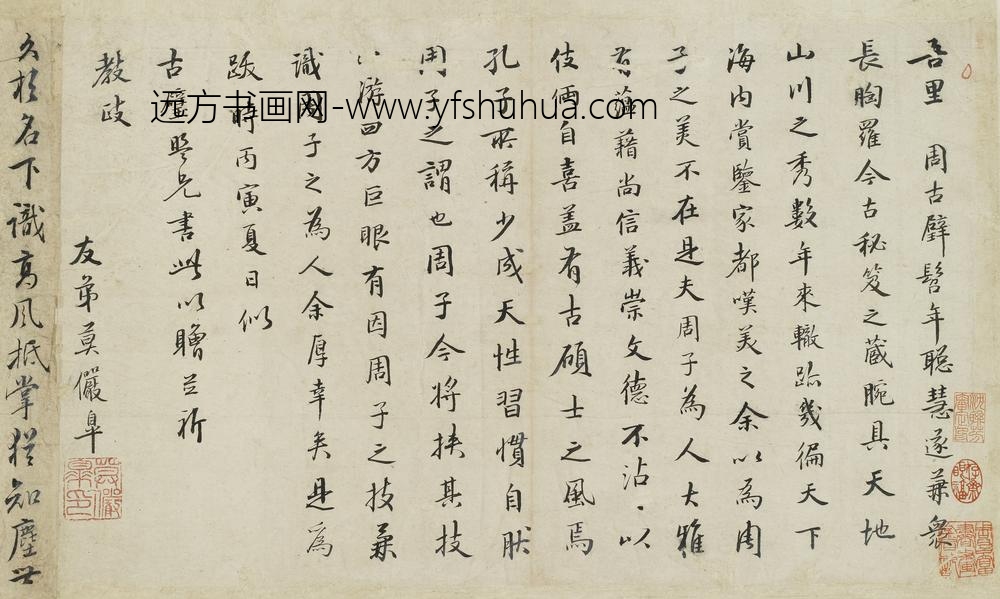 吾里周古辟髫年聡慧遂兼衆
長胸羅今古秘笈之藏腕具天地
山川之秀數年來轍跡幾徧天下
海内賞鑒家都嘆美之余以為周
子之美不在是夫周子為人大雅
藉尚信義崇文德不沾、以
伎倆自喜盖有古碩士之風焉
孔子所稱少成天性習慣自肰
周子之謂也周子今將挾其技
游四方巨眼有因周子之技兼
識周子之為人余厚幸矣是為
跋時丙寅夏日似
古
兄書此以贈並祈
教政
友弟莫儼皐
久於名下識高風抵掌犹知塵世
远方书画网-www.yfshuhua.com